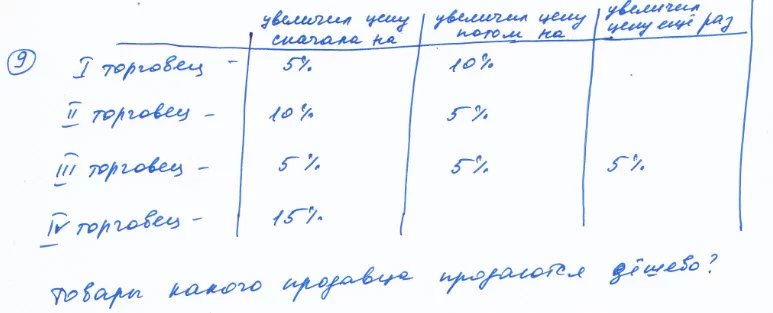 увеличил цену сначала на | увеличил цену потом на | увеличил цену ещё раз
9 I торговец – 5% 10%
II торговец – 10% 5%
III торговец – 5% 5% 5%
IV торговец – 15%
товары какого продавца продаются дёшево?